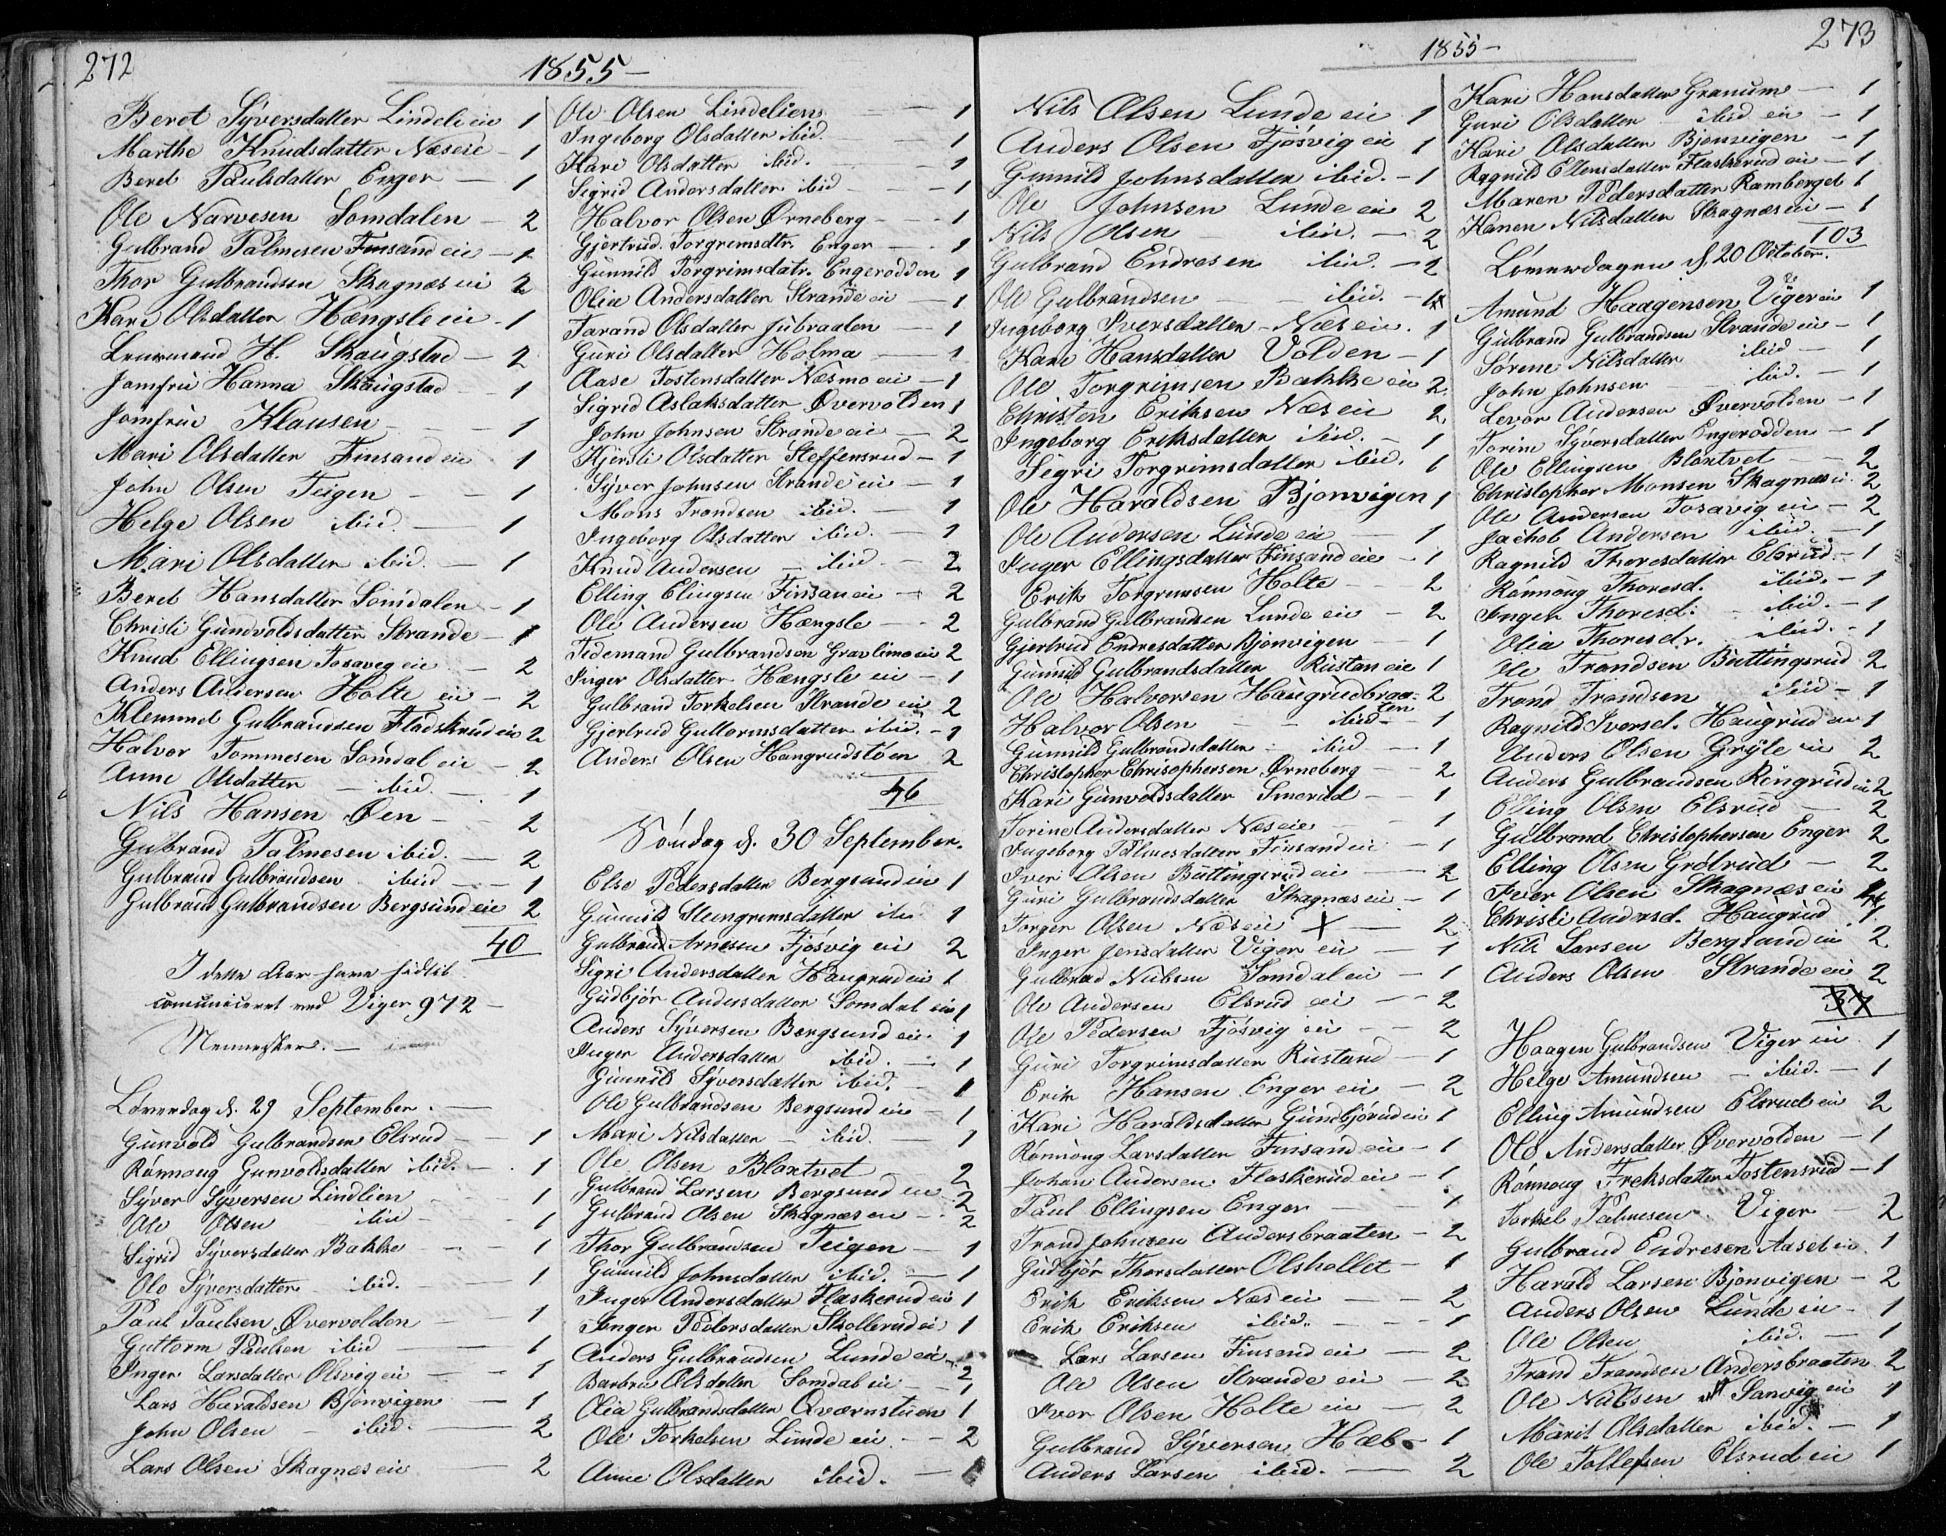 272
1855 –
Beret Syversdatter Lindeli eie 1
Marthe Knudsdatter Næseie – 1
Beret Paulsdatter Enger – 1
Ole Narvesen Somdalen – 2
Gulbrand Palmesen Finsand eie – 1
Thor Gulbrandsen Skagnæs eie 2
Kari Olsdatter Hængsle eie – 1
H. Skaugstad – 2
Jomfru Hanna Skaugstad – 1
Jomfru Klausen – – 1
Mari Olsdatter Finsand eie 1
John Olsen Teigen – – 1
Helge Olsen ibid. – 1
Mari Olsdatter ibid. – 1
Beret Hansdatter Somdalen – 1
Christi Gundvoldsdatter Strande – 1
Knud Ellingsen Tosaveg eie – 2
Anders Andersen Holte eie – 2
Klemmed Gulbrandsen Fladskrud eie 2
Halvor Tommesen Somdal eie – 2
Anne Olsdatter – ibid. – 1
Nils Hansen Øen – 2
Gulbrand Palmesen ibid. – 2
Gulbrand Gulbrandsen ibid – 1
Gulbrand Gulbrandsen Bergsund eie 2
40
I dette Aar have sidst
comuniceret ved Viger 972 –
Mennesker. –
Løverdag d. 29 September. –
Gunvold Gulbrandsen Elsrud – 1
Rønnaug Gunvoldsdatter ibid. – 1
Syver Syversen Lindlien 1
Ole Olsen ibid – 1
Sigrid Syversdatter Bakke – – 1
Olo Syversdatter ibid. – 1
Paul Paulsen Øvervolden – 1
Guttorm Paulsen ibid – 1
Inger Larsdatter Olsvig eie – 1
Lars Haraldsen Bjonvigen – 1
John Olsen – ibid. – 2
Lars Olsen Skagnæs eie – 2
Ole Olsen Lindelien – 1
Ingeborg Olsdatter ibid. – 1
Kari Olsdatter ibid. – 1
Sigrid Andersdatter ibid – 1
Halvor Olsen Ørneberg – – 1
Gjertrud Torgrimsdtr. Enger – 1
Gunnild Torgrimsdatr. Engerodden 1
Olia Andersdatter Strande eie – 1
Tarand Olsdatter Jubraaten – 1
Guri Olsdatter Holma – 1
Aase Tostensdatter Næsmo eie – 1
Sigrid Aslaksdatter Øvervolden 1
John Johnsen Strande eie – 2
Kjersti Olsdatter Steffensrud – 1
Syver Johnsen Strande eie – 1
Mons Trondsen ibid. – 1
Ingeborg Olsdatter ibid. – 1
Knud Andersen – ibid – 2
Elling Elingsen Finsan eie – 2
Ole Andersen Hængsle – 2
Tidemand Gulbrandsen Gravlimo eie 2
Inger Olsdatter Hængsle eie – 1
Gulbrand Torkelsen Strande eie 2
Gjertrud Guttormsdatter ibid. – 1
Anders Olsen Haugrudstøen 2
46
Søndag d. 30 September.
Else Pedersdatter Bergsund eie 1
Gunnild Steengrimsdatter ibi 1
Gulbrand Arnesen Fjösvig eie 2
Sigri Andersdatter Haugrud eie 1
Gudbjör Andersdatter Somdal eie 1
Anders Syversen Bergsund eie. 1
Inger Andersdatter ibid. – 1
Gunnild Syversdatter ibid. – 1
Ole Gulbrandsen Bergsund eie 1
Mari Nilsdatter – ibid. – 1
Ole Olsen Blaxtvet 2
Gulbrand Larsen Bergsund eie 2
Gulbrand Olsen Skagnæs eie – 2
Thor Gulbrandsen Teigen – 1
Gunnild Johnsdatter ibid. – 1
Inger Andersdatter Flaskerud eie 1
Inger Pedersdatter Skollerud ei 1
Anders Gulbrandsen Lunde eie – 2
Barbru Olsdatter Somdal eie – 1
Olia Gulbrandsdatter Qværnstuen 1
Ole Torkelsen Lunde eie. – 2
Anne Olsdatter ibid. –
1855 –
273
Nils Olsen Lunde eie 1
Anders Olsen Fjösvig eie 1
Gunnild Johnsdatter ibid. – 1
Ole Johnsen Lunde eie 2
Nils Olsen – ibid. – 2
Gulbrand Endresen ibid. – 2
Ole Gulbrandsen – ibid. –
Ingeborg Iversdatter – Næs eie. 1
Kari Hansdatter Volden – 1
Ole Torgrimsen Bakke eie 2
Christen Eriksen Næs eie 2
Ingeborg Eriksdatter ibid. – 1
Sigri Torgrimsdatter ibid. 1
Ole Haraldsen Bjonvigen 1
Ole Andersen Lunde eie – 1
Inger Ellingsdatter Finsand eie – 1
Erik Torgrimsen Holte – 2
Gulbrand Gulbrandsen Lunde eie – 2
Gjertrud Endresdatter Bjonvigen – 1
Gunnild Gulbrandsdatter Rustan eie 1
Ole Halvorsen Haugrudbraaten 2
Halvor Olsen – ibid. – 1
Gunnild Gulbrandsdatter – ibid – 1
Christopher Chrisophersen Ørneberg – 2
Kari Gunvoldsdatter Smerud – 1
Torine Andersdatter Næs eie – 1
Ingeborg Palmesdatter Finsand eie – 1
Iver Olsen Buttingsrud eie – 2
Guri Gulbrandsdatter Skagnæs eie – 1
Torger Olsen Næs eie X – 2
Inger Jensdatter Viger eie – 1
Gulbrad Nielsen Somdal eie – 1
Ole Andersen Elsrud eie – 2
Ole Pedersen Fjösvig eie – 2
Guri Torgrimsdatter Rustand – 1
Erik Hansen Enger eie – 2
Kari Haraldsdatter Gundbjörud eie 1
Rönnoug Larsdatter Finsand eie – 1
Johan Andersen Flaskerud eie – 1
Paul Ellingsen Enger – 1
Trond Johnsen Andersbraaten – 2
Gudbjör Thorsdatter Olshollet – 1
Erik Eriksen Næs eie – 2
Erik Eriksen ibid. – 1
Lars Larsen Finsand eie – 2
Ole Olsen Strande eie – 2
Iver Olsen Holte eie – 2
Gulbrand Syversen Hæb – 1
Anders Larsen ibid. – 2
Kari Hansdatter Granum – 1
Guri Olsdatter – ibid eie – 1
Kari Olsdatter Bjonvigen – 1
Ragnild Ellensdatter Flaskerud eie – 1
Maren Pedersdatter Ramberget 1
Karen Nilsdatter Skagnæs eie – 1
103
Løverdagen d. 20 October.
Amund Haagensen Viger eie 1
Gulbrand Gulbrandsen Strande eie – 1
Sørine Nilsdatter ibid – 1
John Johnsen – ibid. – 1
Levor Andersen Øvervolden – 1
Torine Syversdatter Engerodden – 1
Ole Ellingsen Blaxtvet 2
Christopher Monsen Skagnæs ei. 2
Ole Andersen Tosavig eie – 2
Jachob Andersen ibid. – 1
Ragnild Thoresdatter Elsrud. – 1
Rønnoug Thoresd. ibid. – 1
Inger Thoresd: – ibid. – 1
Olia Thoresdr. ibid. – 1
Ole Trondsen Buttingsrud 2
Trond Trondsen ibid – 1
Ragnild Iversd. Haugrud eie 1
Anders Olsen Gryte eie 2
Anders Gulbrandsen Ringrud eie 2
Elling Olsen Elsrud – 2
Gulbrand Christophersen Enger 2
Elling Olsen Grotrud – 2
Iver Olsen Skagnæs eie
Christi Andersd. Haugrud 1
Nils Larsen Bergsund eie 2
Anders Olsen Strande eie 2
37
Haagen Gulbrandsen Viger eie 1
Helge Amundsen – ibid. – 1
Elling Amundsen Elsrud eie 2
Olo Andersdatter Øvervolden – 1
Rönnoug Freksdatter Tostensrud – 1
Torkel Palmesen Viger – 2
Gulbrand Endresen Aaset eie. 1
Harald Larsen Bjonvigen – 2
Anders Olsen Lunde eie – 1
Ole Olsen ibid. – 1
Trond Trondsen Andersbraaten 2
Ole Nielsen Sanvig eie 1
Marit Olsdatter ibid. – 1
Ole Tollefsen Elsrud eie 1